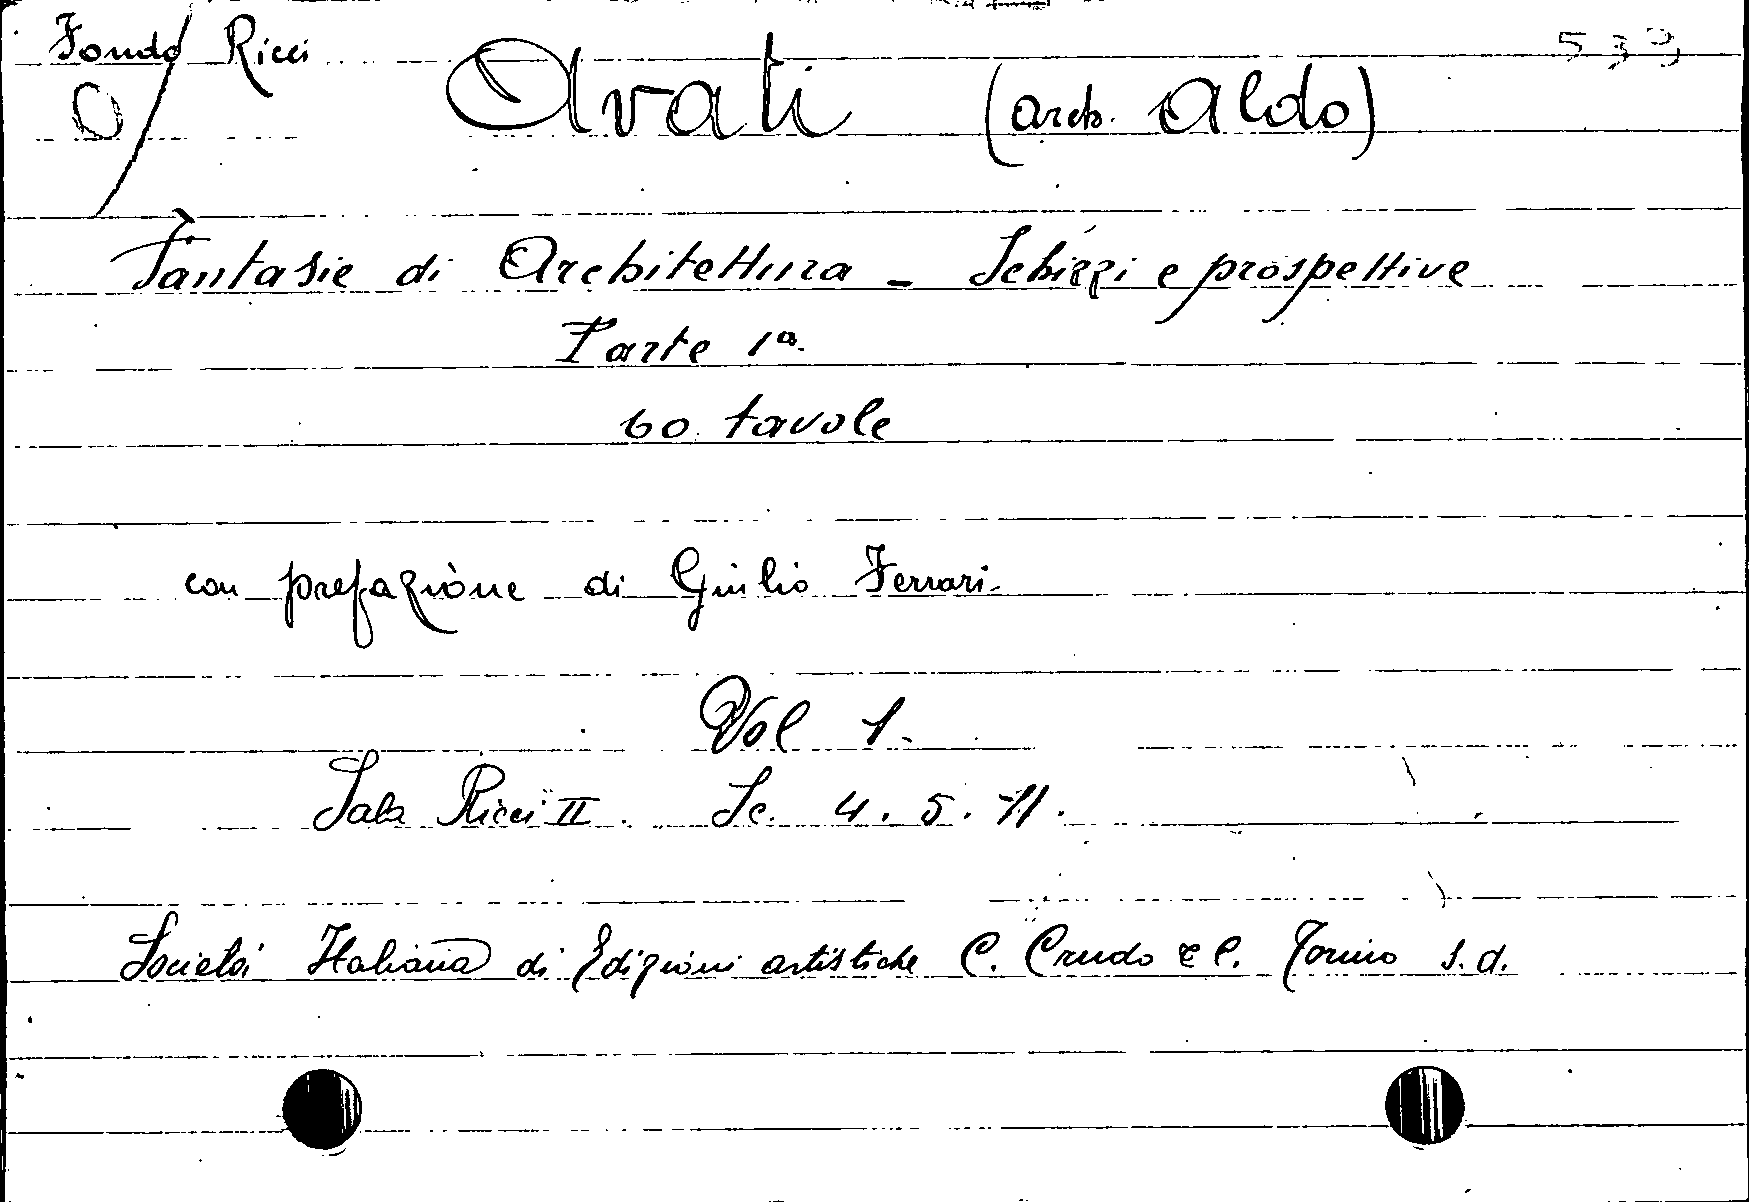 Fondo Ricci
533
Avati (arch. Aldo)
Fantasie di Architettura - Schizzi e prospettive
Parte 1ª
60 tavole
con prefazione di Giulio Ferrari.
Vol 1.
Sala Ricci II. Sc. 4. 5. 11.
Società Italiana di Edizioni artistiche C. Crudo & C. Torino s. d.